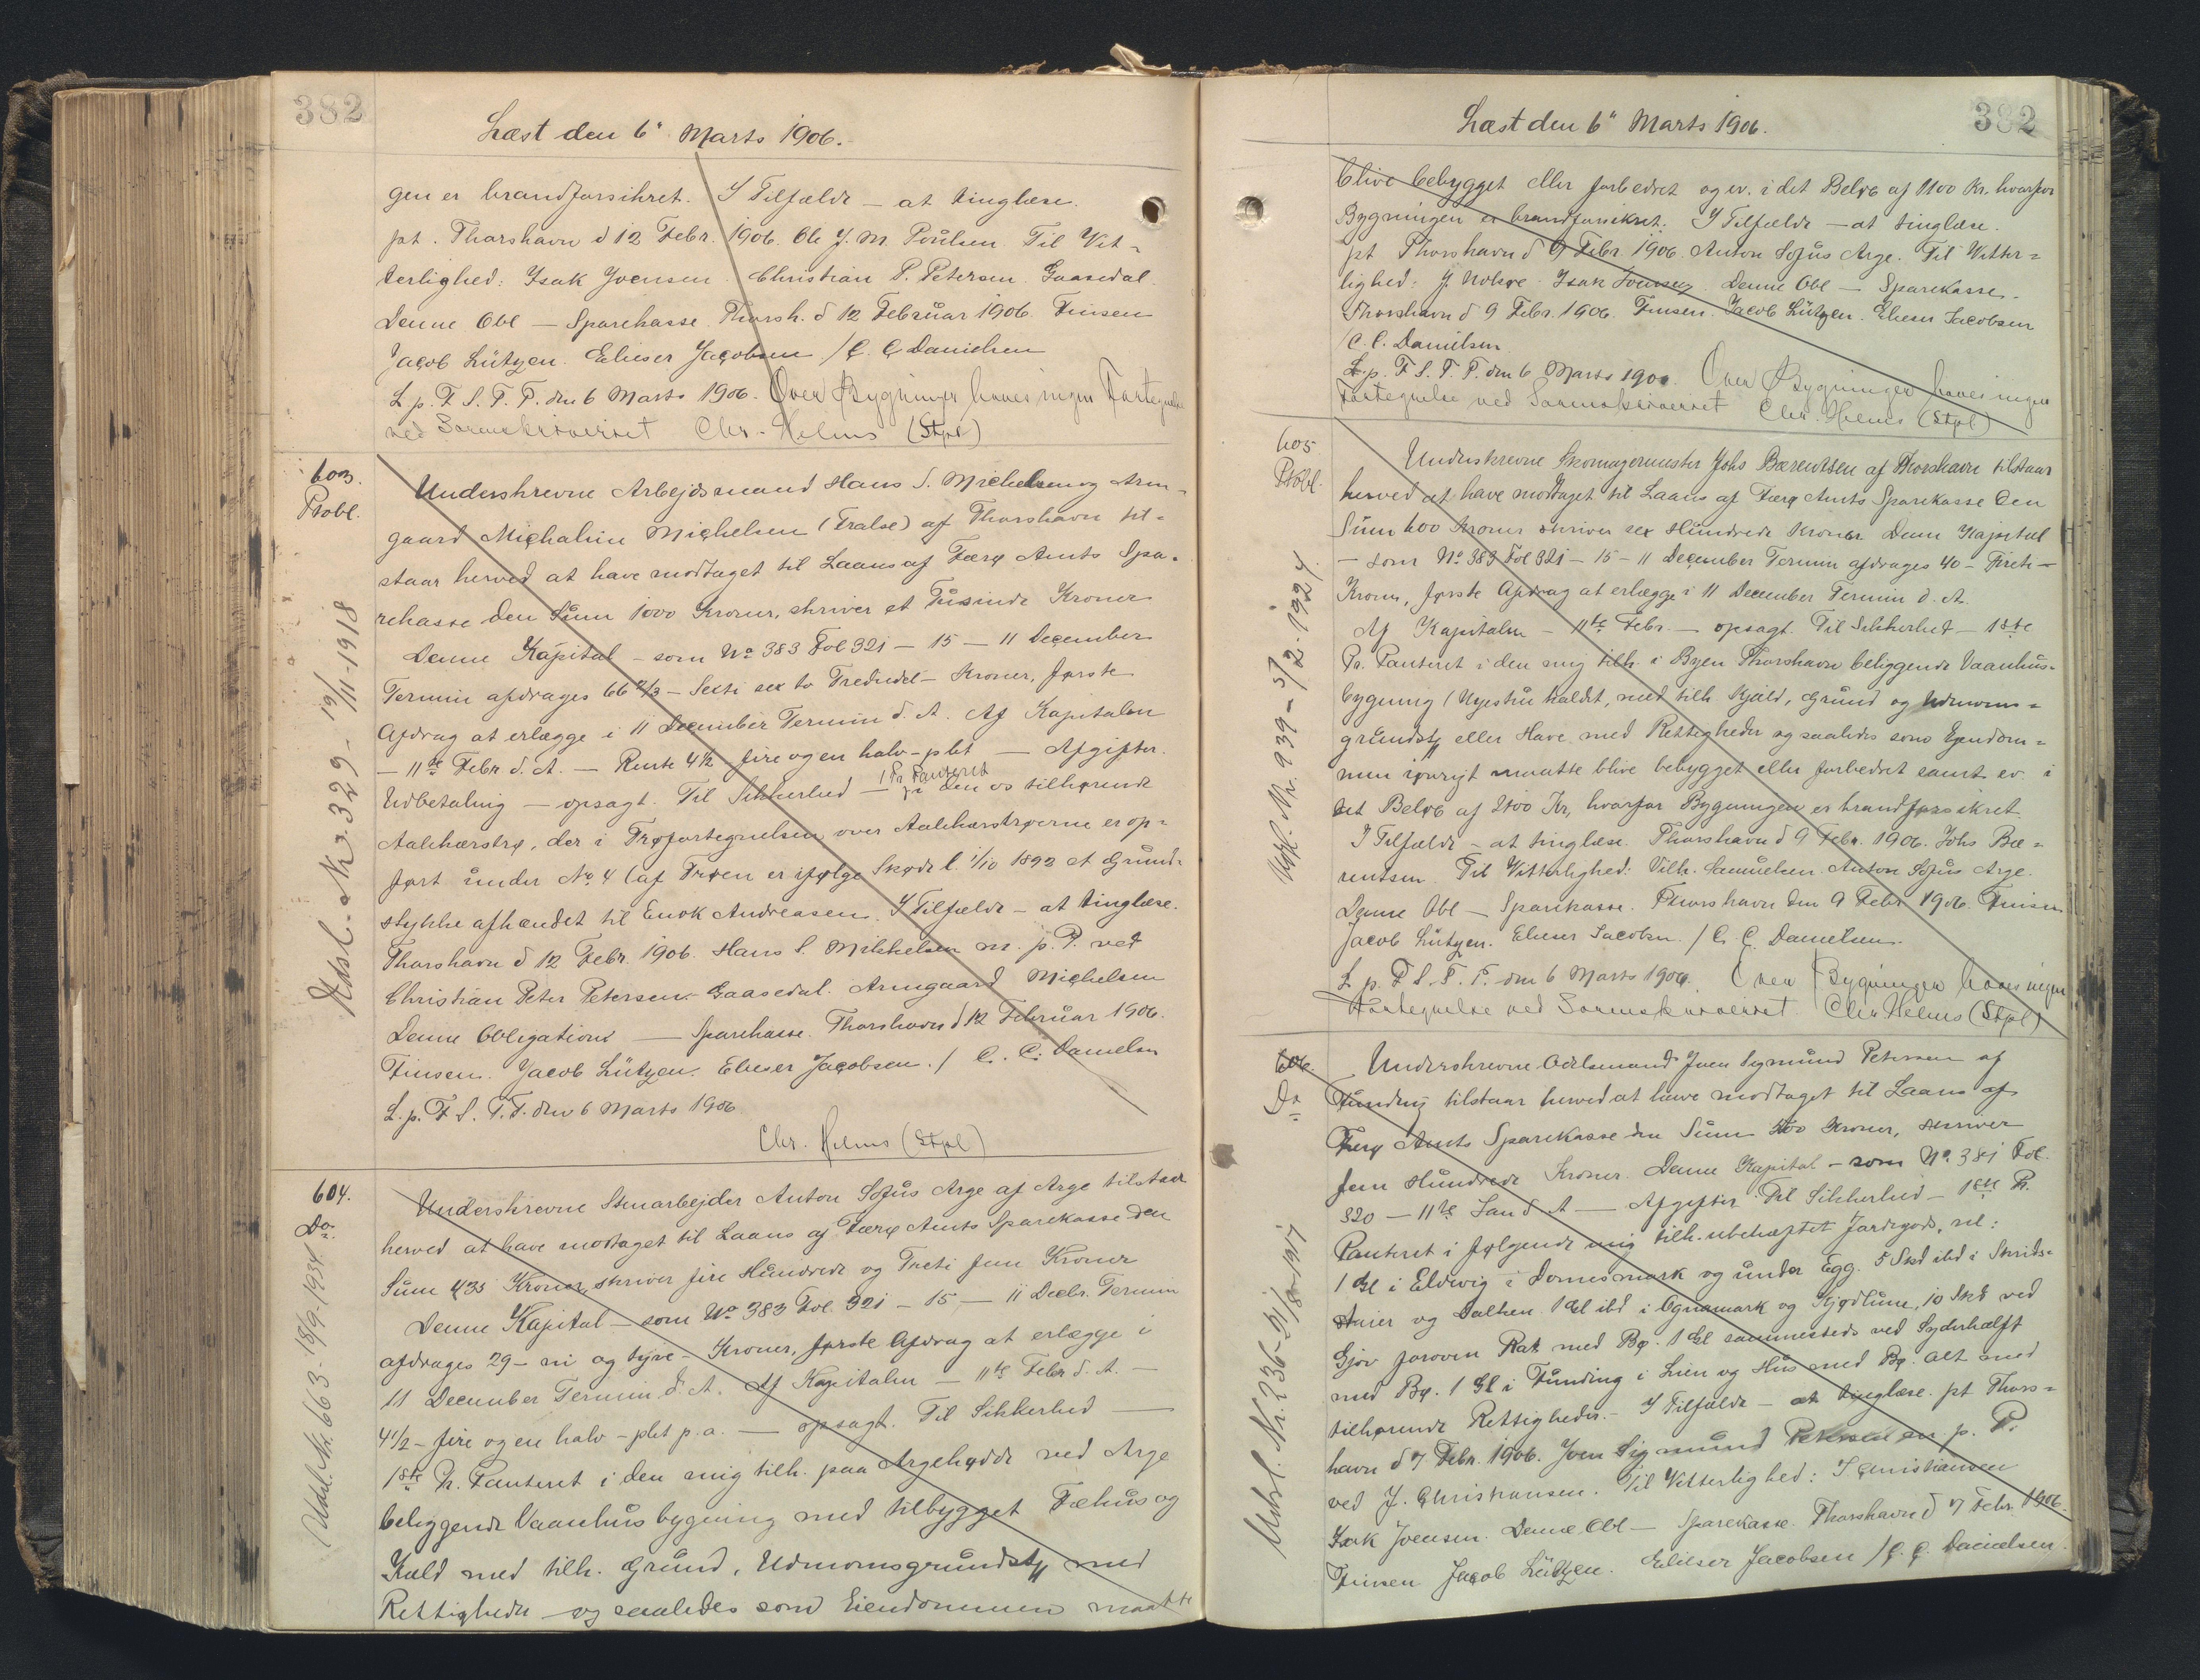 382
Læst den 6" Marts 1906.
gen er brandforsikret. I Tilfælde — at tinglæse.
pt. Thorshavn d 12 Febr. 1906. Ole J. M. Poulsen Til Vit-
terlighed: Isak Joensen. Christian P. Petersen Gaasedal.
Denne Obl — Sparekasse. Thorsh. d 12 Februar 1906. Finsen
Jacob Lützen. Elieser Jacobsen / C. C Danielsen
L. p. F. S. T. T. den 6 Marts 1906. Over Bygninger haves ingen Fortegnelse
ved Sorenskriveriet Chr. Helms (Stpl)
603.
Pobl.
Underskrevne Arbejdsmand Hans S. Michelsen og Arm-
gaard Michaline Michelsen (Fralse) af Thorshavn til-
staar herved at have modtaget til Laans af Færø Amts Spa-
rekasse den Sum 1000 Kroner, skriver et Tusinde Kroner
Denne Kapital — som No 383 Fol 321 — 15 — 11 December
Termin afdrages 66 2/3 — Sexti sex to Trediedel — Kroner, første
Afdrag at erlægge i 11 December Termin d. A. Af Kapitalen
— 11te Febr d. A. — Rente 4½ fire og en halv - pCt — Afgifter.
Udbetaling — opsagt. Til Sikkerhed — 1 Pr. Panteret i den os tilhørende
Aalekærstrø, der i Trøfortegnelsen over Aalekærstrøerne er op-
ført under No 4 (af Trøen er ifølge Skøde l. 1/10 1892 et Grund-
stykke afhændet til Enok Andreasen. I Tilfælde — at tinglæse.
Thorshavn d 12 Febr. 1906. Hans S. Mikkelsen m. p. P. ved
Christian Peter Petersen Gaasedal. Armgaard Michelsen
Denne Obligation — Sparekasse. Thorshavn d 12 Februar 1906.
Finsen. Jacob Lützen. Elieser Jacobsen. / C. C. Danielsen
L. p. F. S. T. T. den 6 Marts 1906
Chr. Helms (Stpl)
Udsl. Nr. 329 - 19/11-1918
604.
Do
Underskrevne Stenarbejder Anton Sofus Arge af Arge tilstaar
herved at have modtaget til Laans af Færø Amts Sparekasse den
Sum 435 Kroner, skriver fire Hundrede og Treti fem Kroner
Denne Kapital — som No 383 Fol. 321 — 15 — 11 Decbr. Termin
afdrages 29 — ni og tyve — Kroner, første Afdrag at erlægge i
11 December Termin d. A. Af Kapitalen — 11te Febr d. A. —
4½ — fire og en halv — pCt p. a. — opsagt. Til Sikkerhed —
1ste Pr. Panteret i den mig tilh. paa Argehødde ved Arge
beliggende Vaanhusbygning med tilbygget Fæhus og
Kjæld med tilh. Grund, Udmarksgrundst. med
Rettigheder — og saaledes som Eiendommen maatte
Udsl. Nr. 663 - 18/9-1934
382
Læst den 6" Marts 1906.
blive bebygget eller forbedret og ev. i det Beløb af 1100 Kr. hvorfor
Bygningen er brandforsikret. I Tilfælde — at tinglæse.
pt Thorshavn d 9 Febr. 1906. Anton Sofus Arge. Til Vitter-
lighed: J. Nolsøe. Isak Joensen. Denne Obl — Sparekasse.
Thorshavn d 9 Febr. 1906. Finsen. Jacob Lützen. Elieser Jacobsen
/ C. C. Danielsen
L. p. F. S. T. T. den 6 Marts 1906. Over Bygninger haves ingen
Fortegnelse ved Sorenskriveriet Chr. Helms (Stpl)
605.
Pobl.
Underskrevne Skomagermester Johs Bærentsen af Thorshavn tilstaar
herved at have modtaget til Laans af Færø Amts Sparekasse Den
Sum 600 Kroner skriver sex Hundrede Kroner Denne Kapital
— som No 383 Fol 321 — 15 — 11 December Termin afdrages 40 — Firti —
Kroner, første Afdrag at erlægge i 11 December Termin d. A.
Af Kapitalen — 11te Febr. — opsagt. Til Sikkerhed — 1ste
Pr. Panteret i den mig tilh. i Byen Thorshavn beliggende Vaanhus-
bygning (Ujestu kaldet, med tilh. Kjæld, Grund og
grundst. eller Have med Rettigheder og saaledes som Ejendom-
men iøvrigt maatte blive bebygget eller forbedret samt ev. i
det Beløb af 2100 Kr, hvorfor Bygningen er brandforsikret
I Tilfælde — at tinglæse. Thorshavn d 9 Febr. 1906. Johs Bæ-
rentsen. Til Vitterlighed: Vilh. Samuelsen. Anton Sofus Arge.
Denne Obl — Sparekasse. Thorshavn den 9 Febr 1906. Finsen
Jacob Lützen. Elieser Jacobsen. / C. C. Danielsen.
L. p. F. S. T. T. den 6 Marts 1906. Over Bygninger haves ingen
Fortegnelse ved Sorenskriveriet. Chr. Helms (Stpl)
Udsl. Nr. 939 - 5/2-1924
606.
Do
Underskrevne Odelsmand Joen Sigmund Petersen af
Funding tilstaar herved at have modtaget til Laans af
Færø Amts Sparekasse den Sum 500 Kroner, skriver
fem Hundrede Kroner. Denne Kapital — som No 381 Fol.
320 — 11te Jan d A — Afgifter. Til Sikkerhed — 1ste Pr.
Panteret i følgende mig tilh. ubehæftet Jordegods, nl:
1 Gl i Eldevig i Domusmark og under Egg. 5 Skd ibd i
og Dalken. 1 Gl ibd i Ognamark og Kjødlune, 10 Skd ved
Gjov foroven Rak med Bø. 1 Gl sammesteds ved Syderhalft
med Bø. 1 Gl i Funding i Lien og Hus med Bø. alt med
tilhørende Rettigheder. — I Tilfælde — at tinglæse. pt Thors-
havn d 7 Febr. 1906. Joen Sigmund Petersen m. p. P.
ved J. Christiansen. Til Vitterlighed: J. Christiansen
Isak Joensen. Denne Obl — Sparekasse. Thorshavn d 7 Febr. 1906.
Finsen Jacob Lützen. Elieser Jacobsen / C. C. Danielsen.
Udsl. Nr. 236 - 31/8-1917